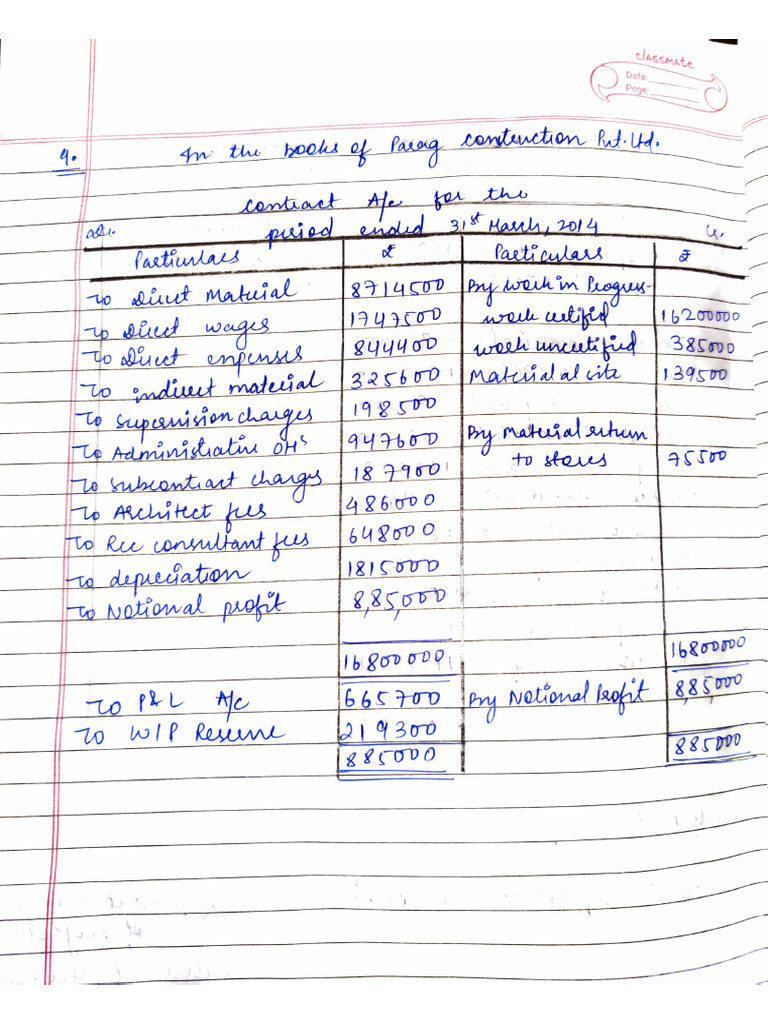 classmate
Date
Page
9. In the books of Parag construction Pvt. Ltd.
contract A/c for the
period ended 31st March, 2014
Dr. Cr.
Particulars ₹ Particulars ₹
To Direct Material 8714500 By work in Progress-
To Direct wages 1747500 work certified 16200000
To Direct expenses 844400 work uncertified 385000
To indirect material 325600 Material at site 139500
To Supervision charges 198500
To Administrative OHs 947600 By Material return
To Subcontract charges 187900 to stores 75500
To Architect fees 486000
To Rcc consultant fees 648000
To depreciation 1815000
To Notional profit 8,85,000
16800000 16800000
To P&L A/c 665700 By Notional Profit 8,85,000
To W/P Reserve 219300
885000 885000